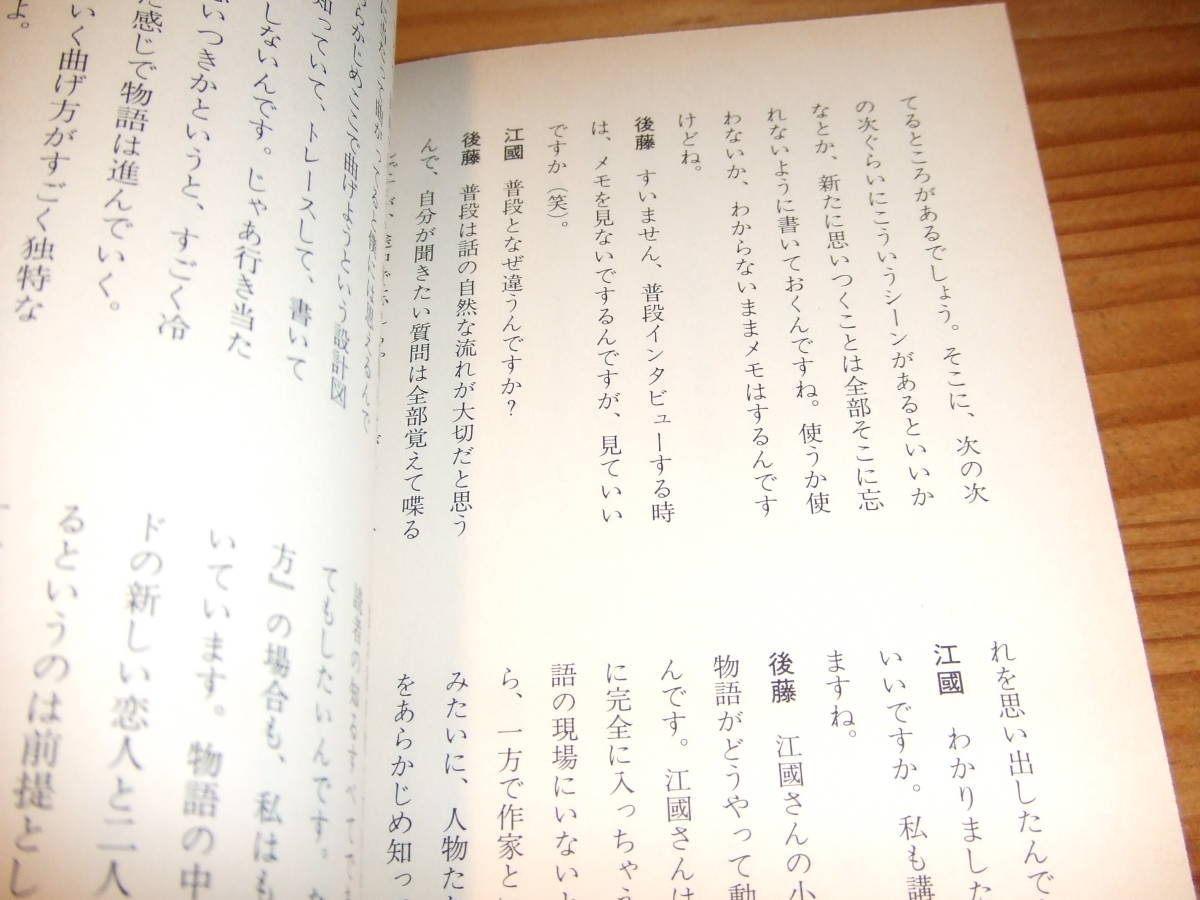 てるところがあるでしょう。そこに、次の次
の次ぐらいにこういうシーンがあるといいか
なとか、新たに思いつくことは全部そこに忘
れないように書いておくんですね。使うか使
わないか、わからないままメモはするんです
けどね。
後藤 すいません、普段インタビューする時
は、メモを見ないでするんですが、見ていい
ですか（笑）。
江國 普段となぜ違うんですか？
後藤 普段は話の自然な流れが大切だと思う
んで、自分が聞きたい質問は全部覚えて喋る
れを思い出したんで
江國 わかりました
いいですか。私も講
ますね。
後藤 江國さんの小
物語がどうやって動
んです。江國さんは
に完全に入っちゃう
語の現場にいないと
ら、一方で作家とい
みたいに、人物た
をあらかじめ知っ
らかじめここで曲げようという設計図
知っていて、トレースして、書いて
しないんです。じゃあ行き当た
いつきかというと、すごく冷
た感じで物語は進んでいく。
いく曲げ方がすごく独特な
よ。
読者の知るすべてでも
てもしたいんです。
方』の場合も、私はも
いています。物語の中
ドの新しい恋人と二人
るというのは前提とし